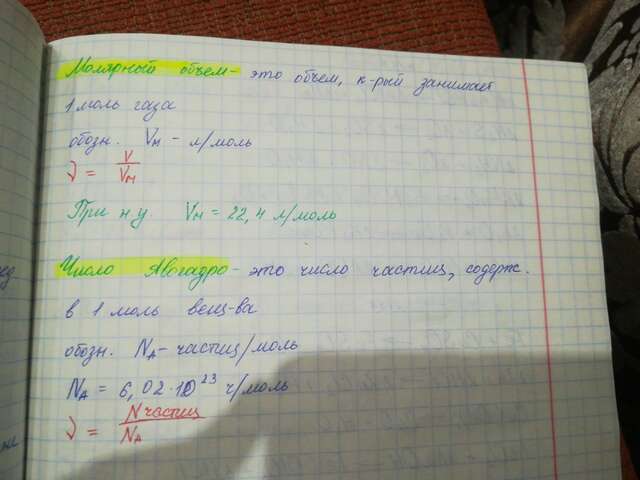 Молярный объем - это объем, к-рый занимает
1 моль газа
обозн. Vм - л/моль
ν = V/Vм
При н.у. Vм = 22,4 л/моль
Число Авогадро - это число частиц, содерж.
в 1 моль вещ-ва
обозн. NA - частиц/моль
NA = 6,02·10²³ ч/моль
ν = Nчастиц/NA